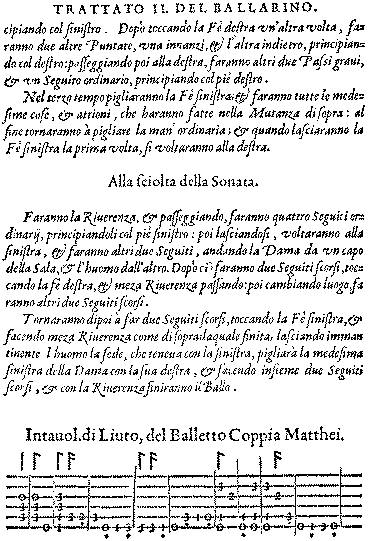 TRATTATO II. DEL BALLARINO.
cipiando col sinistro. Dopò toccando la Fè destra vn'altra volta, fa-
ranno due altre Puntate, vna innanzi, & l'altra indietro, principian-
do col destro: passeggiando poi alla destra, faranno altri due Passi graui,
& vn Seguito ordinario, principiando col piè destro.
Nel terzo tempo pigliaranno la Fè sinistra: & faranno tutte le mede-
sime cose, & attioni, che haranno fatte nella Mutanza di sopra: al
fine tornaranno à pigliare la man' ordinaria; & quando lasciaranno la
Fè sinistra la prima volta, si voltaranno alla destra.
Alla sciolta della Sonata.
Faranno la Riuerenza, & passeggiando, faranno quattro Seguiti or-
dinarij, principiandoli col piè sinistro: poi lasciandosi, voltaranno alla
sinistra, & faranno altri due Seguiti, andando la Dama da vn capo
della Sala, & l'huomo dall'altro. Dopò ciò faranno due Seguiti scorsi, toc-
cando la fè destra, & meza Riuerenza passando: poi cambiando luogo, fa
ranno altri due Seguiti scorsi.
Tornaranno dipoi à far due Seguiti scorsi, toccando la Fè sinistra, &
facendo meza Riuerenza come di sopra: laquale finita, lasciando imman
tinente l'huomo la fede, che teneua con la sinistra, pigliarà la medesima
sinistra della Dama con la sua destra, & facendo insieme due Seguiti
scorsi, & con la Riuerenza finiranno il Ballo.
Intauol. di Liuto, del Balletto Coppia Matthei.